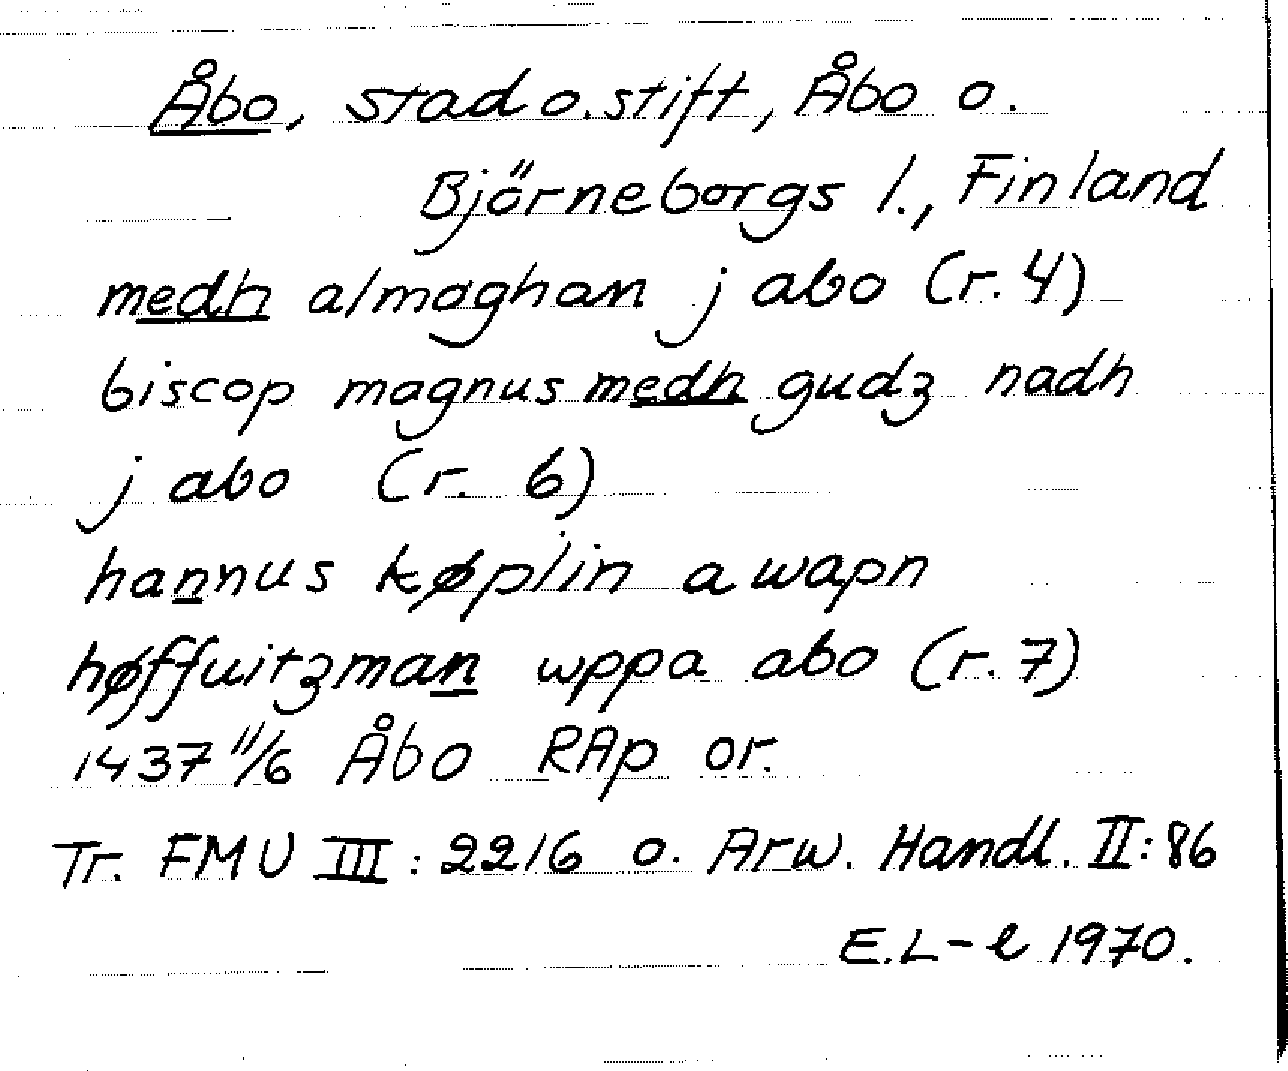 Åbo, stad o. stift, Åbo o.
Björneborgs l., Finland
medh almoghan j abo (r. 4)
biscop magnus medh gudz nadh
j abo (r. 6)
hannus køplin a wapn
høffuitzman wppa abo (r. 7)
1437 11/6 Åbo RAp or.
Tr. FMU III: 2216 o. Arw. Handl. II: 86
E.L-l 1970.